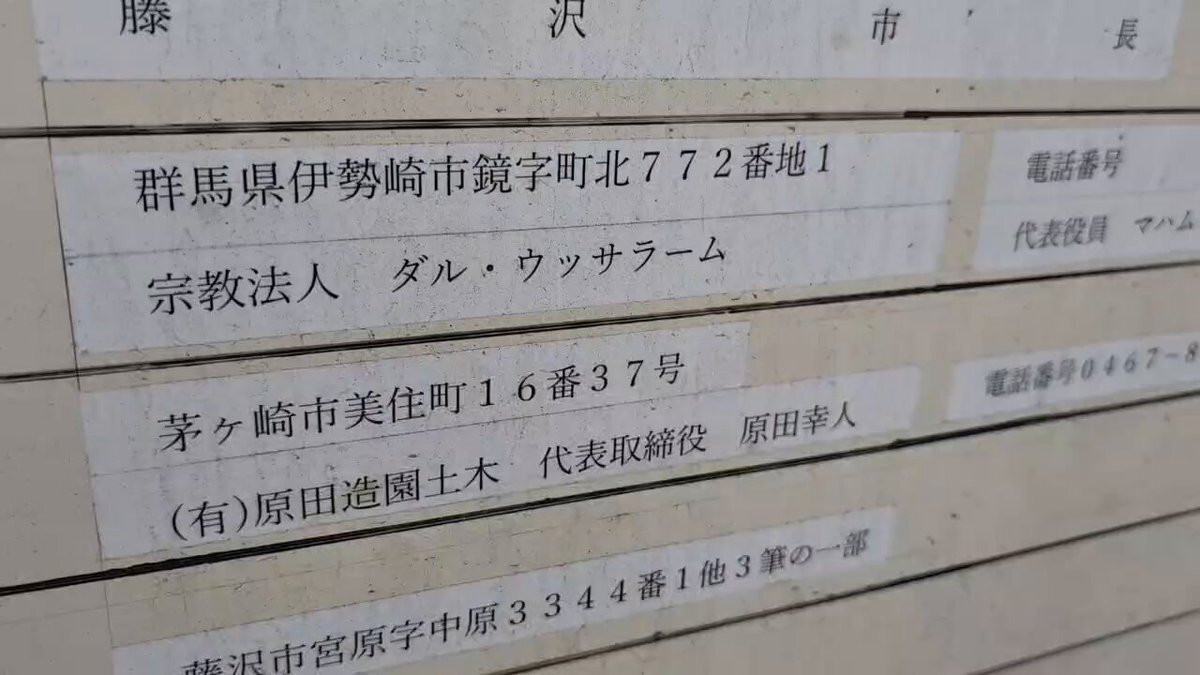 藤沢市長
群馬県伊勢崎市鏡字町北７７２番地１
電話番号
宗教法人　ダル・ウッサラーム
代表役員　マハム
茅ヶ崎市美住町１６番３７号
電話番号０４６７－８
(有)原田造園土木　代表取締役　原田幸人
藤沢市宮原字中原３３４４番１他３筆の一部